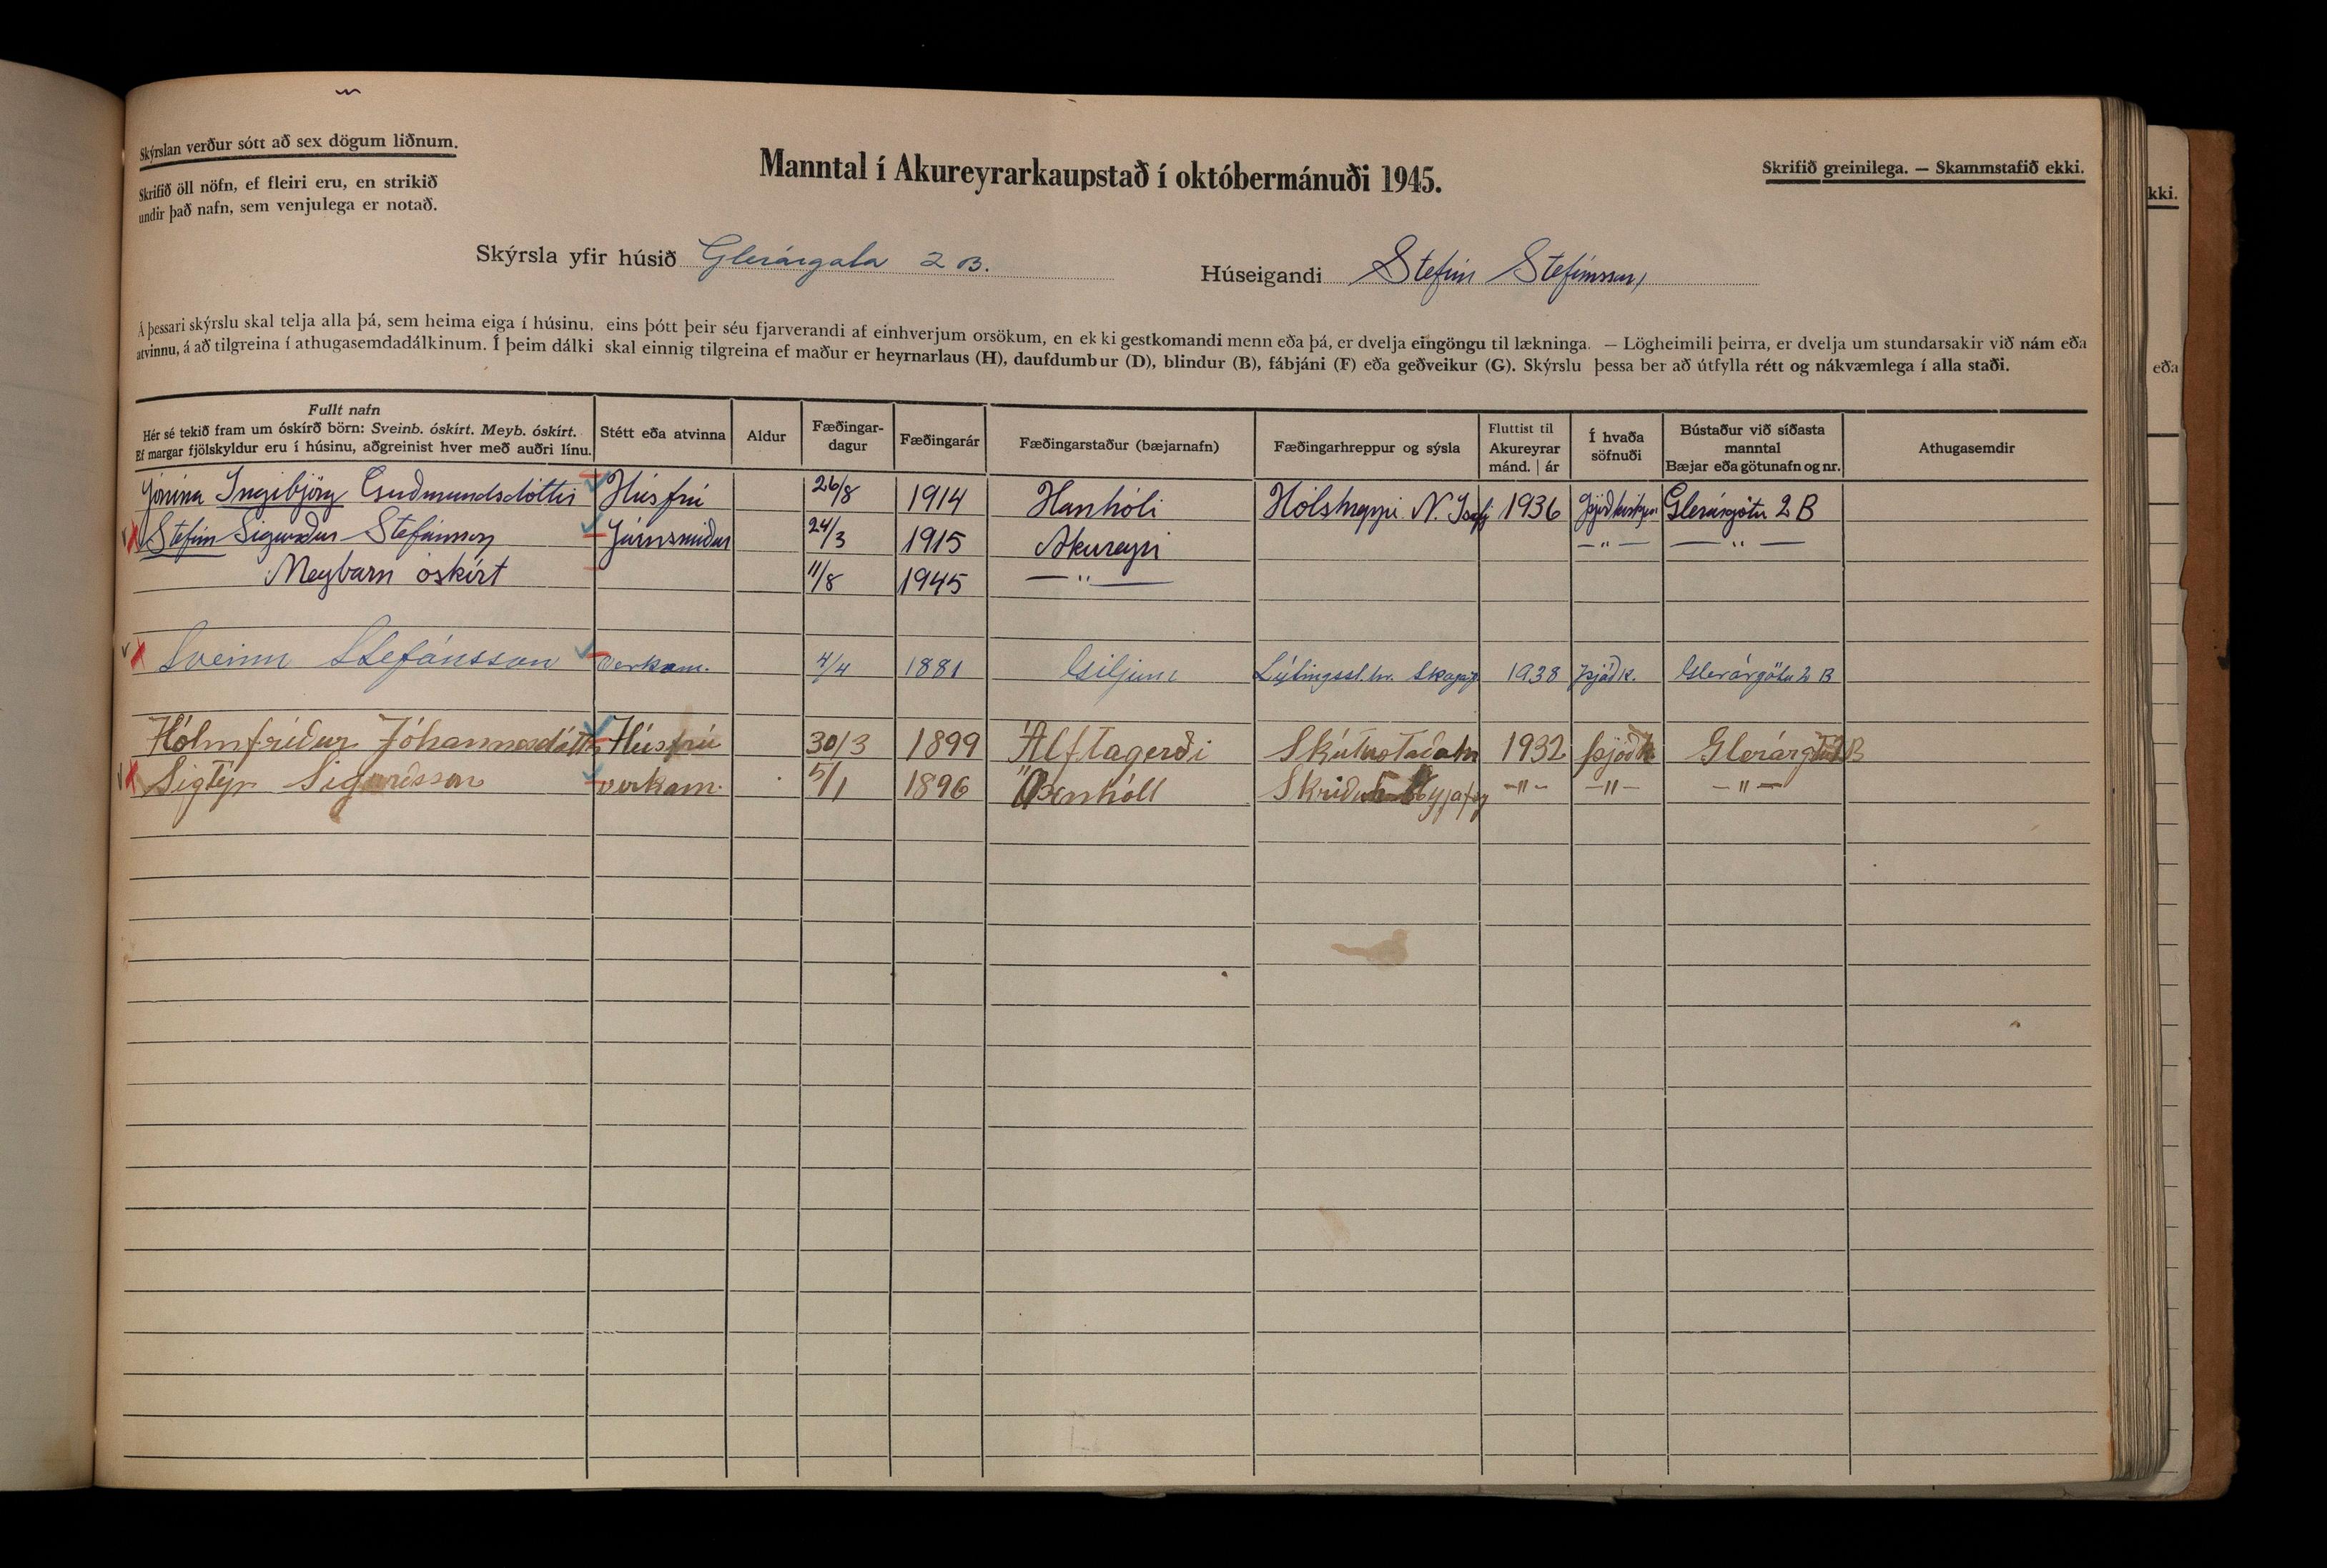 Skýrslan verður sótt að sex dögum liðnum.
Skrifið öll nöfn, ef fleiri eru, en strikið
undir það nafn, sem venjulega er notað.
Manntal í Akureyrarkaupstað í októbermánuði 1945.
Skrifið greinilega. — Skammstafið ekki.
kki.
Skýrsla yfir húsið Glerárgata 2 B.
Húseigandi Stefán Stefánsson,
Á þessari skýrslu skal telja alla þá, sem heima eiga í húsinu, eins þótt þeir séu fjarverandi af einhverjum orsökum, en ekki gestkomandi menn eða þá, er dvelja eingöngu til lækninga. — Lögheimili þeirra, er dvelja um stundarsakir við nám eða
atvinnu, á að tilgreina í athugasemdadálkinum. Í þeim dálki skal einnig tilgreina ef maður er heyrnarlaus (H), daufdumbur (D), blindur (B), fábjáni (F) eða geðveikur (G). Skýrslu þessa ber að útfylla rétt og nákvæmlega í alla staði.
eða
Fullt nafn
Hér sé tekið fram um óskírð börn: Sveinb. óskírt. Meyb. óskírt.
Ef margar fjölskyldur eru í húsinu, aðgreinist hver með auðri línu.
Stétt eða atvinna
Aldur
Fæðingar-
dagur
Fæðingarár
Fæðingarstaður (bæjarnafn)
Fæðingarhreppur og sýsla
Fluttist til
Akureyrar
mánd. | ár
Í hvaða
söfnuði
Bústaður við síðasta
manntal
Bæjar eða götunafn og nr.
Athugasemdir
Jónína Ingibjörg Guðmundsdóttir Húsfrú 26/8 1914 Hanhóli Hólshreppi N. Ísafj 1936 Þjóðkirkjan Glerárgötu 2 B
Stefán Sigurður Stefánsson Járnsmiður 24/3 1915 Akureyri — " — — " —
Meybarn óskírt 11/8 1945 — " —
Sveinn Stefánsson verkam. 4/4 1881 Giljum Lýtingsst.hr. Skagaf. 1938 Þjóðk. Glerárgötu 2 B
Hólmfríður Jóhannesdóttir Húsfrú 30/3 1899 Álftagerði Skútustaðahr 1932 Þjóðk Glerárgötu 2 B
Sigtýr Sigurðsson verkam. 5/1 1896 Öxnhóll Skriðuh Eyjafj — " — — " — — " —